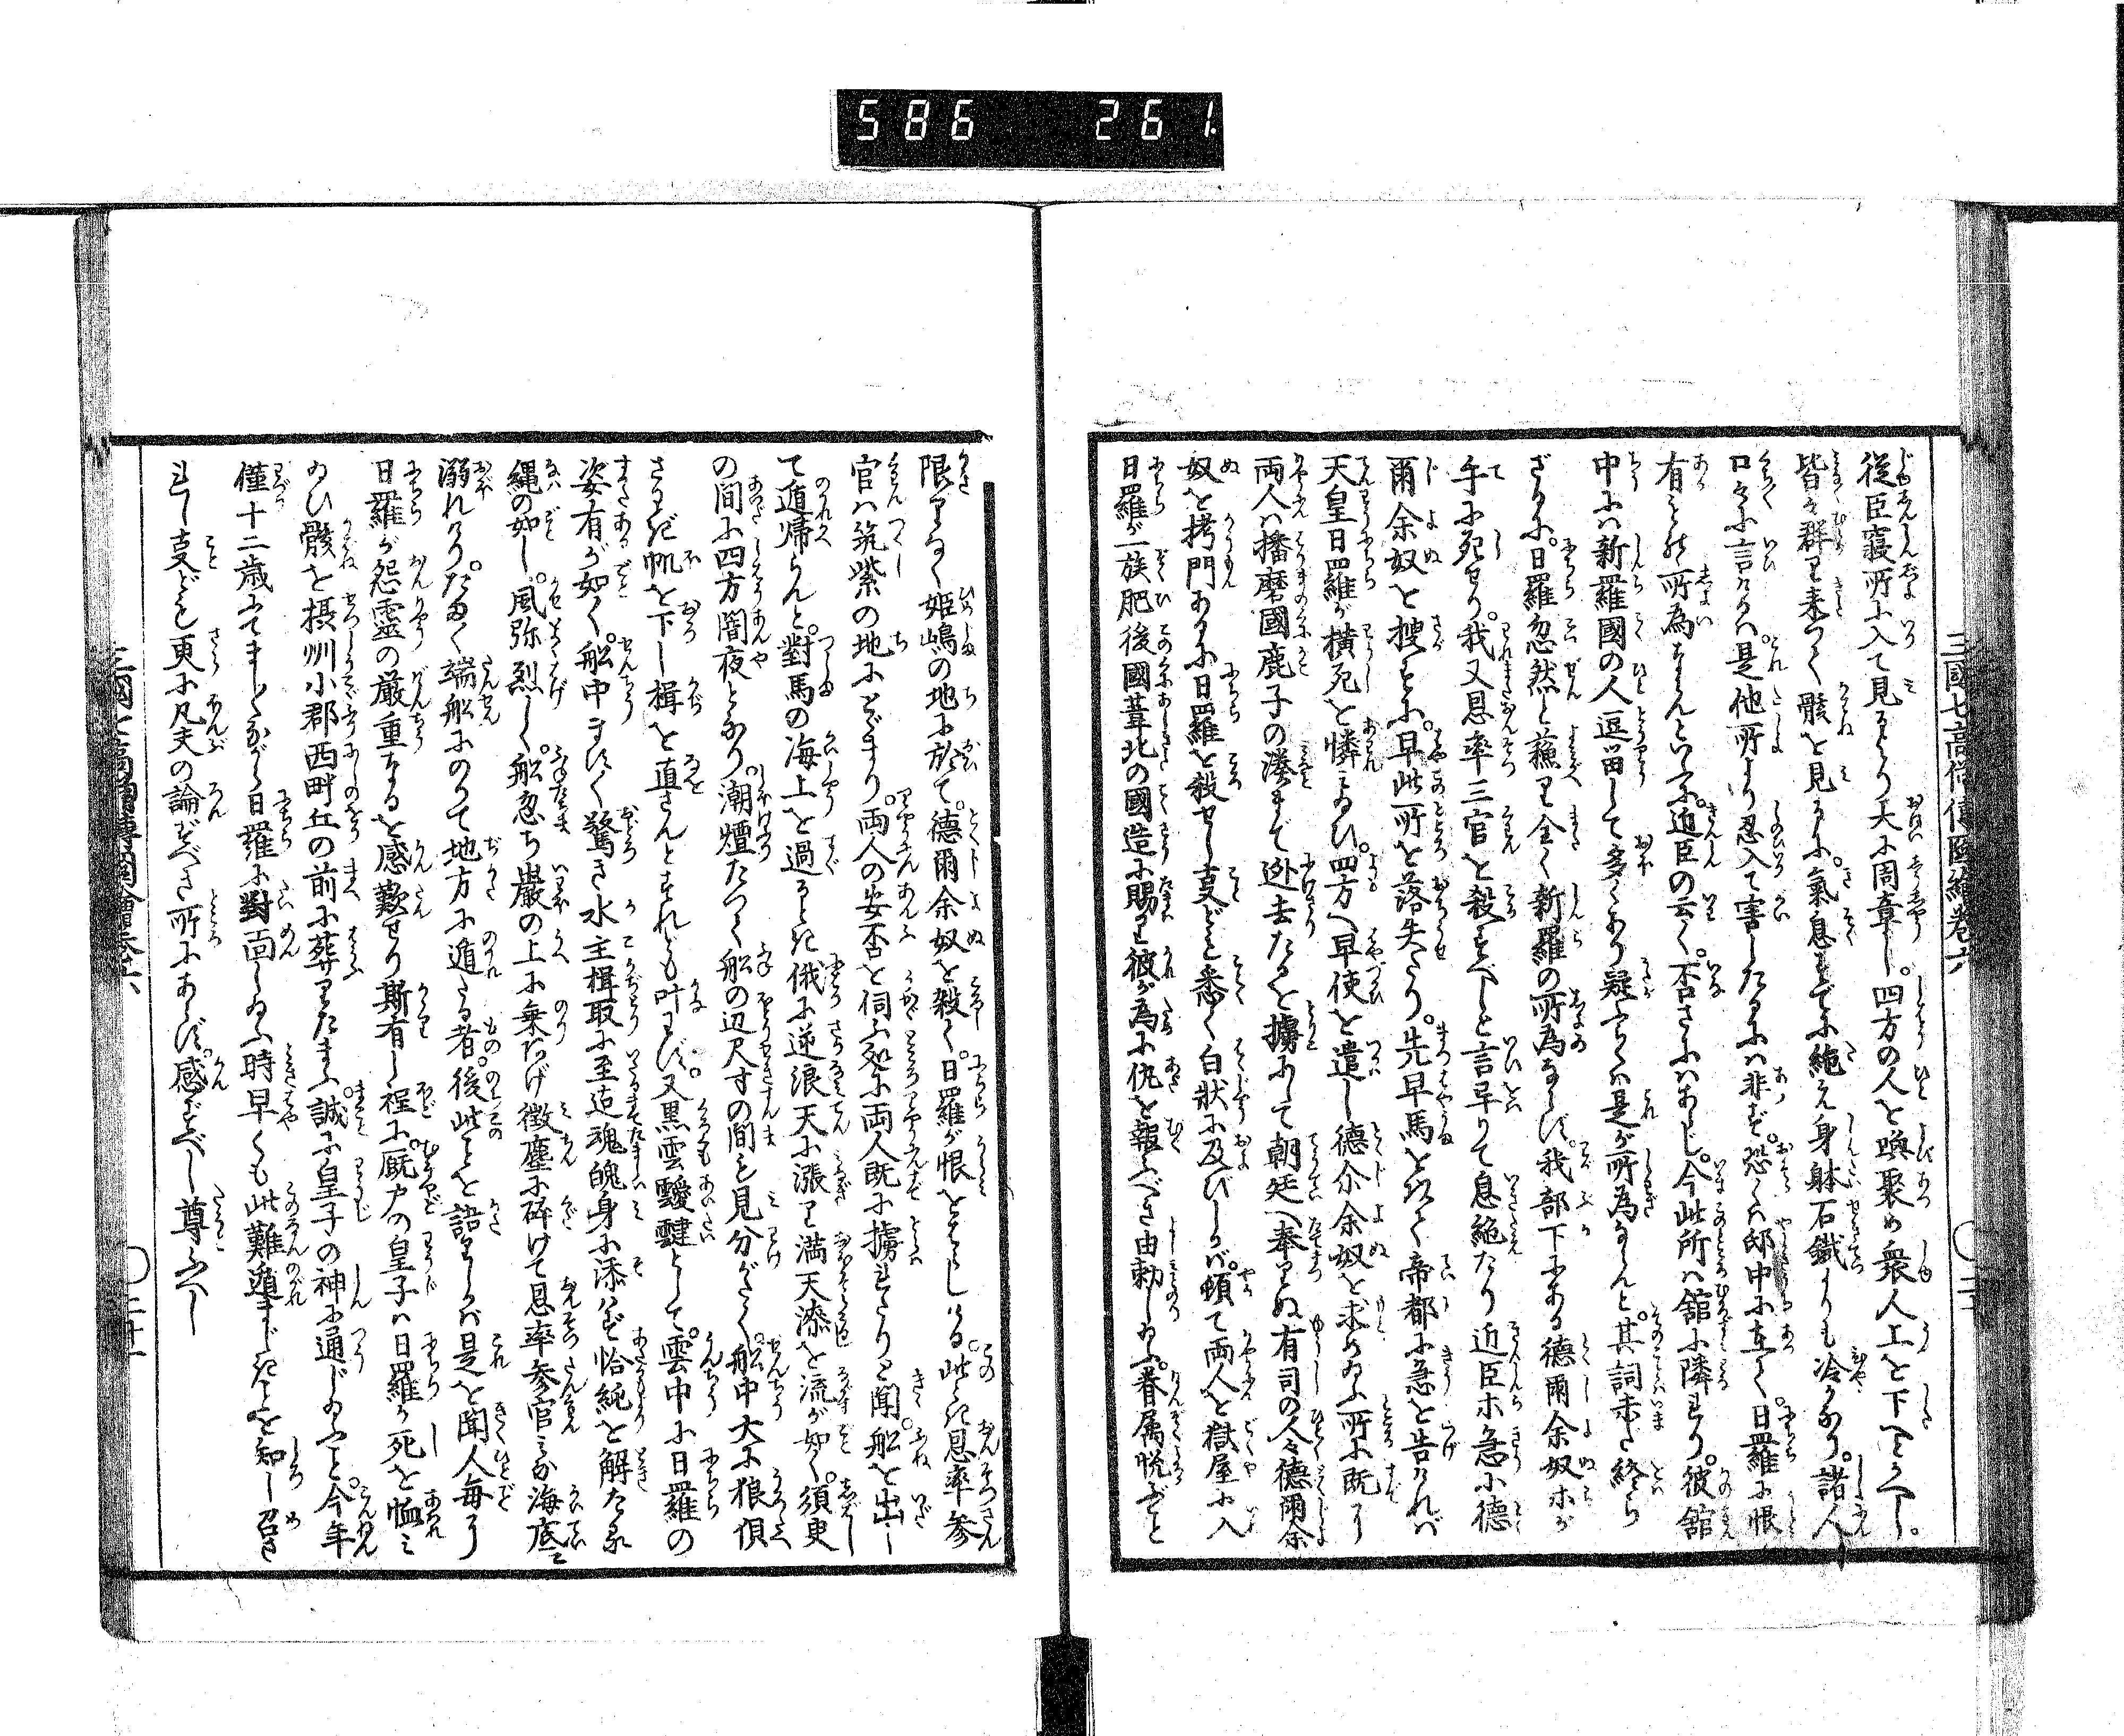 586 261
三國七高僧傳圖繪巻六
従臣寝所に入て見るより大に周章し。四方の人を喚聚め衆人上を下へとかへし。
皆々群り来つて骸を見るに。氣息すでに絶え身躰石鐵よりも冷かなり。諸人
口々に言けるハ是他所より忍入て害したるにハ非ず。恐くハ邸中に在て。日羅に恨
有ものゝ所為ならんといふ。近臣の云く。否さにハあらじ。今此所ハ舘に隣れり。彼舘
中にハ新羅國の人逗留して多くあり疑ふらくハ是が所為ならんと。其詞未だ終ら
ざるに。日羅忽然と蘇り全く新羅の所為ならず。我部下にある德爾余奴ホが
手に死せり。我又恩率三官を殺すべしと言早りて息絶たり近臣ホ急に德
爾余奴を捜すに。早此所を落失たり。先早馬をはせて帝都に急を告ければ
天皇日羅が横死を憐ミ給ひ。四方へ早使を遣し德尒余奴を求め給ふ所に既に
両人ハ播磨國鹿子の湊まで迯去たるを擄にして朝廷へ奉りぬ有司の人々德爾余
奴を拷問あるに日羅を殺せし支どもを悉く白状に及びしかバ。頓て両人を獄屋に入
日羅が一族肥後國葦北の國造に賜り彼が為に仇を報ふべき由勅し給ふ。眷属悦ぶこと
限りなく姫嶋の地に於て。德爾余奴を殺く。日羅が恨をはらしける。此とき恩率参
官ハ筑紫の地にとゞまり。両人の安否を伺ふ処に両人既に擄れたりと聞。船を出し
て遁帰らんと。對馬の海上を過るとき俄に逆浪天に漲り満天漆を流が如く。須臾
の間に四方闇夜となり。潮煙たつて船の辺尺寸の間も見分がたく。船中大に狼狽
さわぎ帆を下し楫を直さんとすれども叶わず。又黒雲靉靆として。雲中に日羅の
姿有が如く。船中ますく驚き水主楫取に至迄魂魄身に添ハず恰純を解たる
縄の如し。風弥烈しく。船忽ち巌の上に乗あげ微塵に砕けて恩率参官ミな海底に
溺れけり。だゞく端船にのりて地方に遁たる者。後此ことを語りしかバ是を聞人毎に
日羅が怨霊の厳重なるを感歎せり斯有し程に。厩戸の皇子ハ日羅が死を恤ミ
給ひ骸を摂州小郡西畔丘の前に葬りたまふ。誠に皇子の神に通じ給ふこと。今年
僅十二歳にてましくながら日羅に對面し給ふ時早くも此難遁まじきことを知し召さ
れし支ども更に凡夫の論ずべき所にあらず。感ずべし尊ふべし
三國七高僧傳圖會巻六